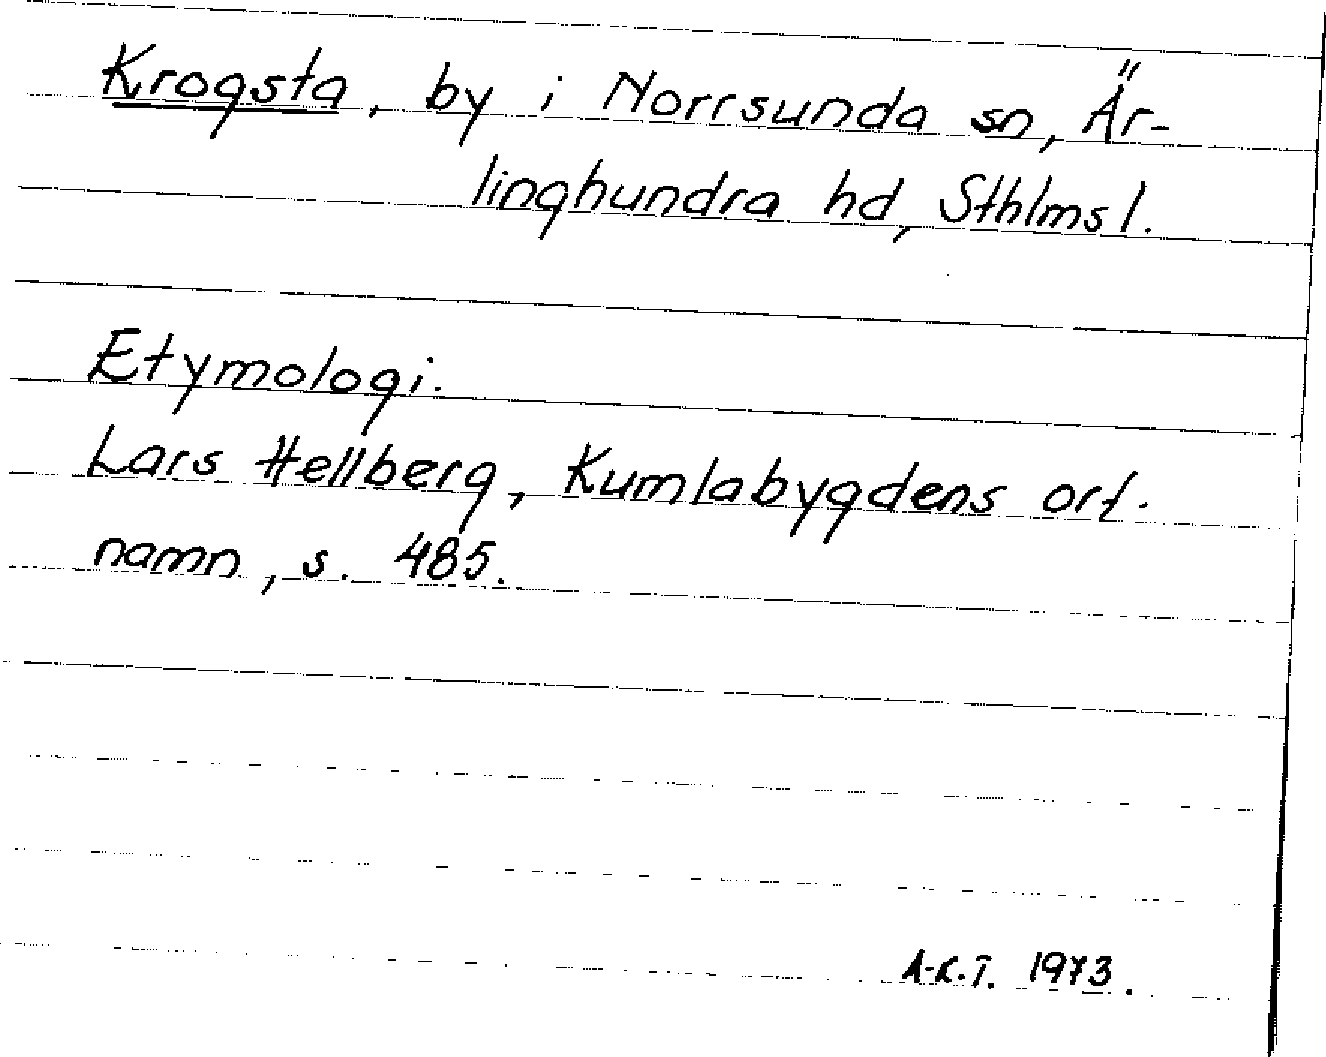 Krogsta, by i Norrsunda sn, Är-
linghundra hd, Sthlms l.
Etymologi.
Lars Hellberg, Kumlabygdens ort-
namn, s. 485.
A-K.T. 1973.